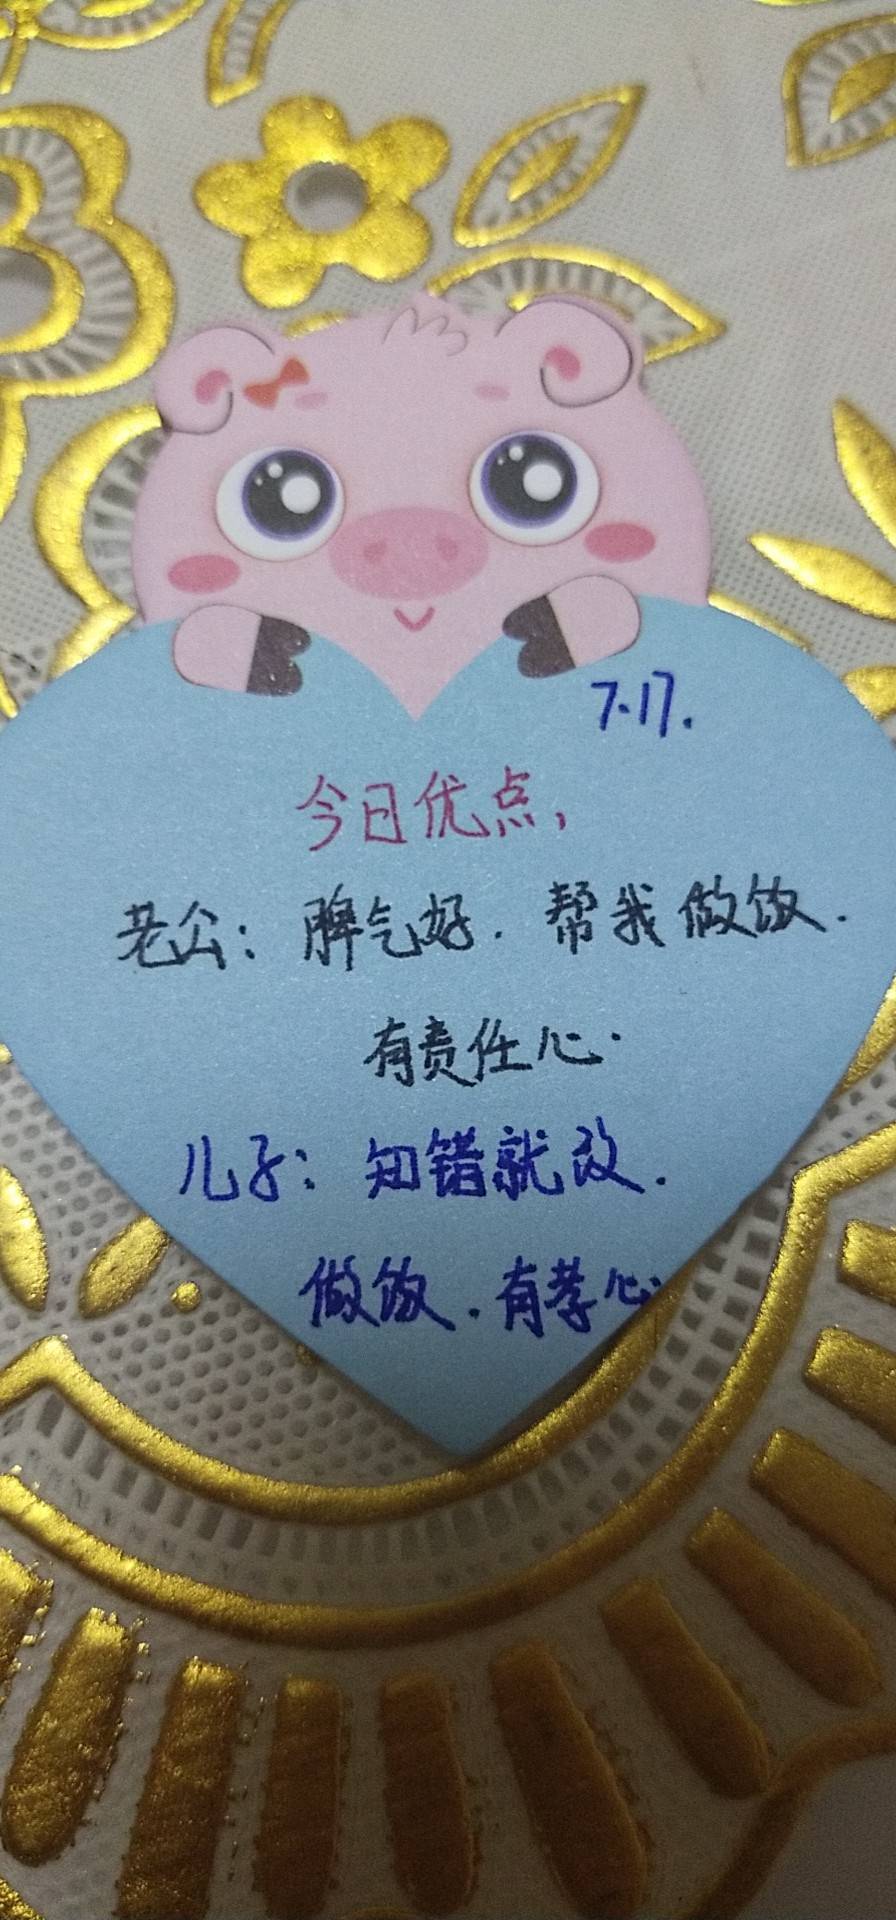 7.17.
今日优点,
老公: 脾气好. 帮我做饭.
有责任心.
儿子: 知错就改.
做饭. 有孝心.